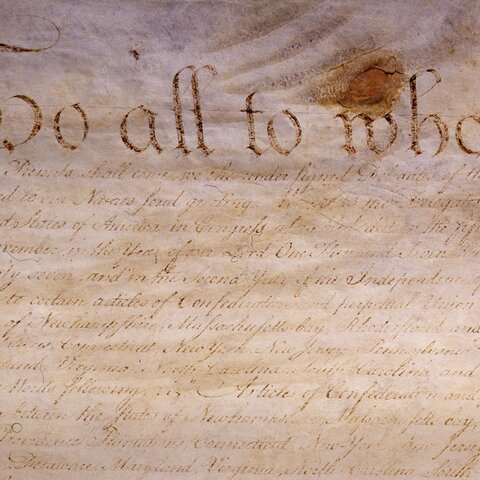 To all to who
Presents shall come, we the under signed Delegates of the
our Names send greeting. Whereas the Delegates
States of America in Congress assembled did on the fif
November in the Year of our Lord One Thousand Seven
seven, and in the Second Year of the Independence of
to certain articles of Confederation and perpetual Union
of Newhampshire, Massachusetts-bay, Rhodeisland and
Connecticut, New York, New Jersey, Penn
Virginia, North-Carolina, South-Carolina and
Words following, viz. "Articles of Confederation and
between the States of Newhampshire, Massachusetts-bay,
Providence Plantations, Connecticut, New-York, New-Jersey,
Delaware, Maryland, Virginia, North-Carolina, South